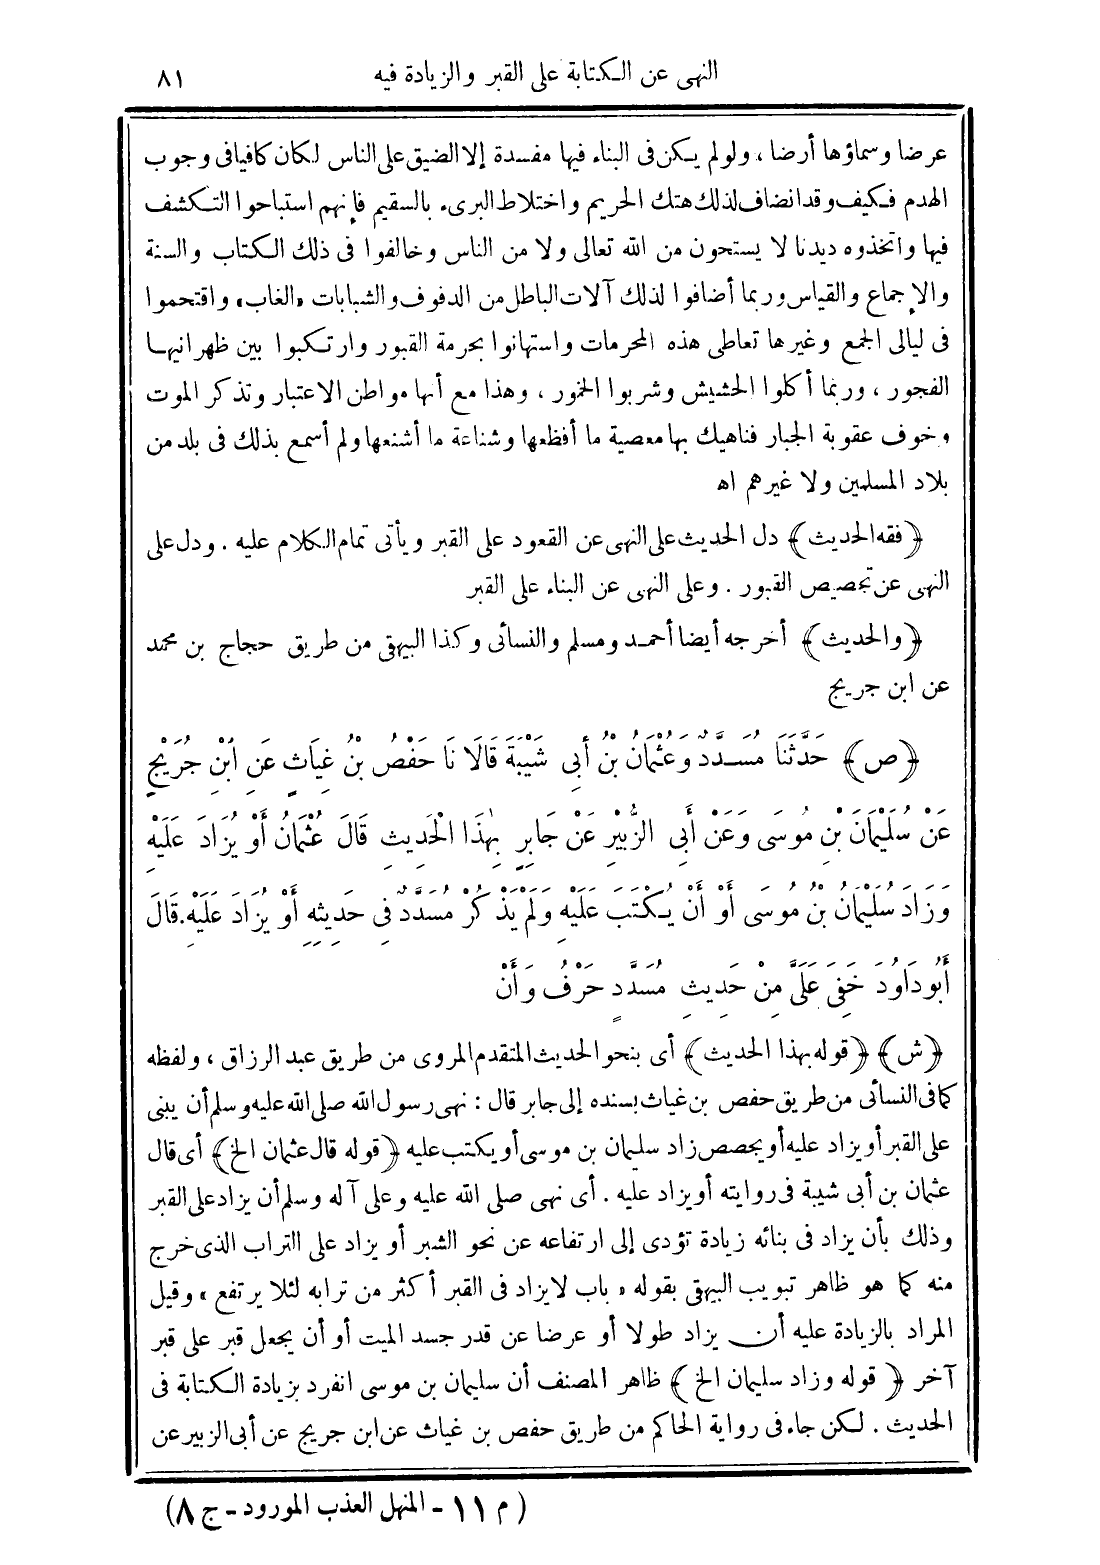 النهى عن الكتابة على القبر والزيادة فيه ٨١
عرضا وسماؤها أرضا ، ولو لم يكن فى البناء فيها مفسدة إلا الضيق على الناس لكان كافيا فى وجوب
الهدم فكيف وقد انضاف لذلك هتك الحريم واختلاط البرىء بالسقيم فإنهم استباحوا التكشف
فيها واتخذوه ديدنا لا يستحون من الله تعالى ولا من الناس وخالفوا فى ذلك الكتاب والسنة
والإجماع والقياس وربما أضافوا لذلك آلات الباطل من الدفوف والشبابات «الغاب» واقتحموا
فى ليالى الجمع وغيرها تعاطى هذه المحرمات واستهانوا بحرمة القبور وارتكبوا بين ظهرانيهـا
الفجور ، وربما أكلوا الحشيش وشربوا الخمور ، وهذا مع أنها مواطن الاعتبار وتذكر الموت
وخوف عقوبة الجبار فناهيك بها معصية ما أفظعها وشناعة ما أشنعها ولم أسمع بذلك فى بلد من
بلاد المسلمين ولا غيرهم اه
﴿فقه الحديث﴾ دل الحديث على النهى عن القعود على القبر ويأتى تمام الكلام عليه . ودل على
النهى عن تجصيص القبور . وعلى النهى عن البناء على القبر
﴿والحديث﴾ أخرجه أيضا أحمد ومسلم والنسائى وكذا البيهقى من طريق حجاج بن محمد
عن ابن جريج
﴿ص﴾ حَدَّثَنَا مُسَدَّدٌ وَعُثْمَانُ بْنُ أَبِى شَيْبَةَ قَالَا نَا حَفْصُ بْنُ غِيَاثٍ عَنِ ابْنِ جُرَيْجٍ
عَنْ سُلَيْمَانَ بْنِ مُوسَى وَعَنْ أَبِى الزُّبَيْرِ عَنْ جَابِرٍ بِهٰذَا الْحَدِيثِ قَالَ عُثْمَانُ أَوْ يُزَادَ عَلَيْهِ
وَزَادَ سُلَيْمَانُ بْنُ مُوسَى أَوْ أَنْ يُكْتَبَ عَلَيْهِ وَلَمْ يَذْكُرْ مُسَدَّدٌ فِى حَدِيثِهِ أَوْ يُزَادَ عَلَيْهِ. قَالَ
أَبُو دَاوُدَ خَفِىَ عَلَىَّ مِنْ حَدِيثِ مُسَدَّدٍ حَرْفُ وَأَنْ
﴿ش﴾ ﴿قوله بهذا الحديث﴾ أى بنحو الحديث المتقدم المروى من طريق عبد الرزاق ، ولفظه
كما فى النسائى من طريق حفص بن غياث بسنده إلى جابر قال : نهى رسول الله صلى الله عليه وسلم أن يبنى
على القبر أو يزاد عليه أو يجصص زاد سليمان بن موسى أو يكتب عليه ﴿قوله قال عثمان الخ﴾ أى قال
عثمان بن أبى شيبة فى روايته أو يزاد عليه . أى نهى صلى الله عليه وعلى آله وسلم أن يزاد على القبر
وذلك بأن يزاد فى بنائه زيادة تؤدى إلى ارتفاعه عن نحو الشبر أو يزاد على التراب الذى خرج
منه كما هو ظاهر تبويب البيهقى بقوله «باب لا يزاد فى القبر أكثر من ترابه لئلا يرتفع» وقيل
المراد بالزيادة عليه أن يزاد طولا أو عرضا عن قدر جسد الميت أو أن يجعل قبر على قبر
آخر ﴿قوله وزاد سليمان الخ﴾ ظاهر المصنف أن سليمان بن موسى انفرد بزيادة الكتابة فى
الحديث . لكن جاء فى رواية الحاكم من طريق حفص بن غياث عن ابن جريج عن أبى الزبير عن
(م ١١ - المنهل العذب المورود - ج ٨)